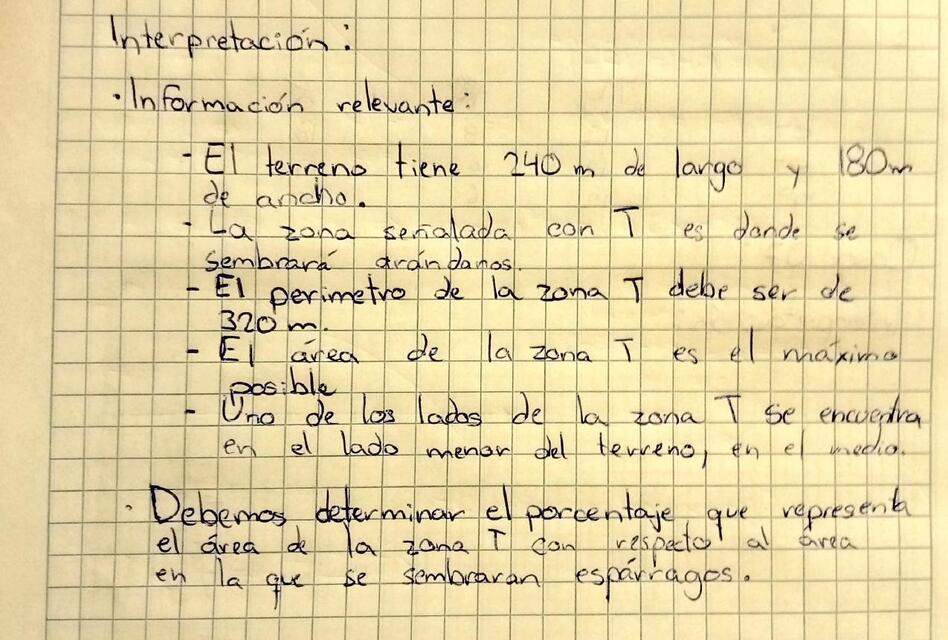 Interpretación:
· Información relevante:
- El terreno tiene 240 m de largo y 180m
de ancho.
- La zona señalada con T es donde se
sembrará arándanos.
- El perimetro de la zona T debe ser de
320 m.
- El área de la zona T es el máximo
posible
- Uno de los lados de la zona T se encuentra
en el lado menor del terreno, en el medio.
· Debemos determinar el porcentaje que representa
el área de la zona T con respecto al área
en la que se sembraran espárragos.